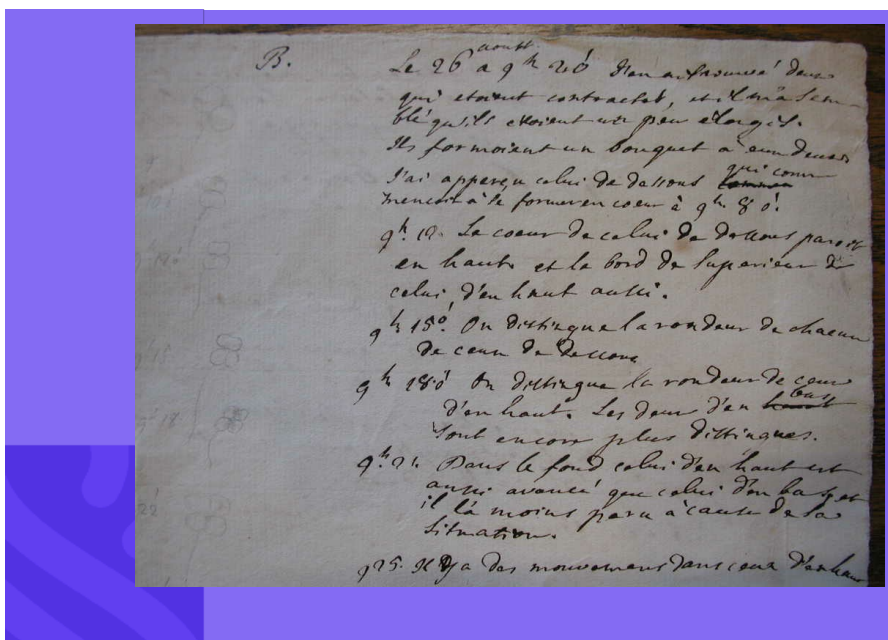 B.
aoust
Le 26 a 9h 20' j'en ai trouvé deux
qui etoient contractés, et il m'a sem-
blé qu'ils etoient un peu elargis.
Ils formoient un bouquet a eux deux
J'ai apperçu celui de dessous qui com
mencoit à se former en coeur à 9h. 8 0'.
9h. 12. Le coeur de celui de dessous paroit
en haut et le bord de superieur de
celui d'en haut aussi.
9h 15' On distingue la rondeur de chacun
de ceux de dessous
9h 18' On distingue la rondeur de ceux
d'en haut. Les deux d'en bas
sont encore plus distingués.
9h. 21. Dans le fond celui d'en haut est
aussi avancé que celui d'en bas, et
il l'a moins paru à cause de sa
situation.
9 25. Il y a des mouvemens dans ceux d'en haut